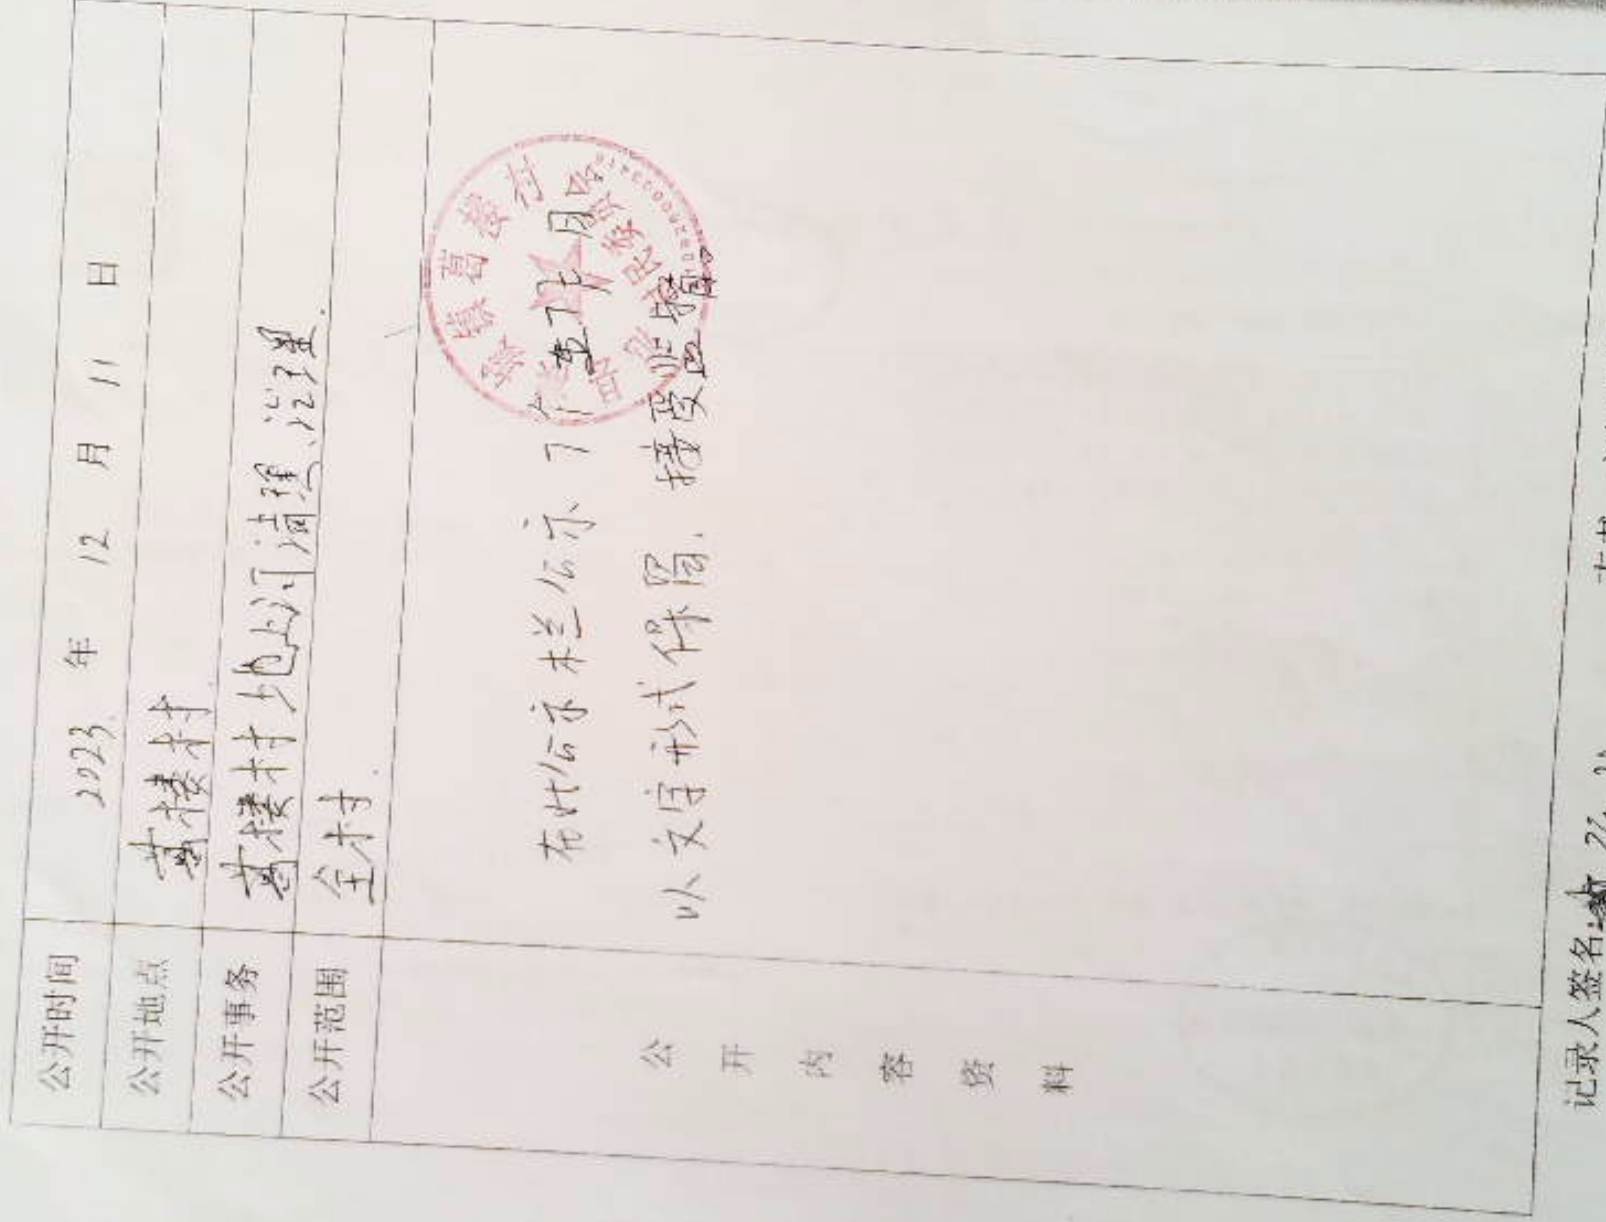 公开时间 2023 年 12 月 11 日
公开地点 葛楼村
公开事务 葛楼村地上河清理、治理.
公开范围 全村.
公开内容资料
在此公示栏公示了个 月
以文字形式保留、接受监督。
城镇葛楼村 村民委员会
记录人签名: